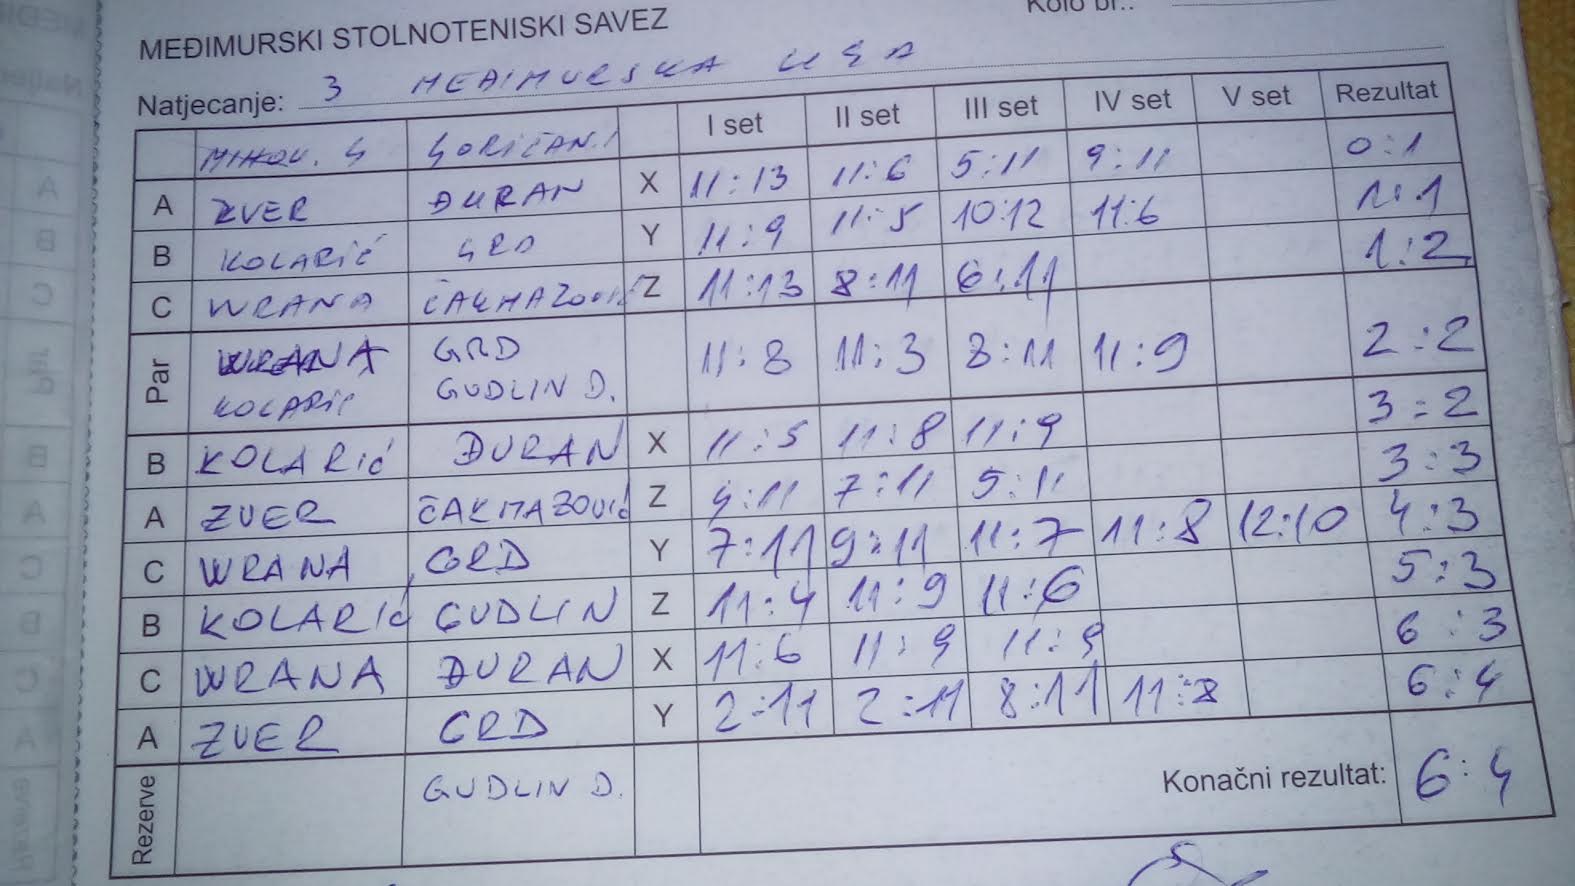 Kolo br.:
MEĐIMURSKI STOLNOTENISKI SAVEZ
Natjecanje: 3 MEĐIMURSKA LIGA
MIHOV. G GORIČAN. I I set II set III set IV set V set Rezultat
A ZVER ĐURAN X 11:13 11:6 5:11 9:11 0:1
B KOLARIĆ GRD Y 11:9 11:5 10:12 11:6 1:1
C WRANA ČAKMAZOVIĆ Z 11:13 8:11 6:11 1:2
Par WRANA GRD 11:8 11:3 8:11 11:9 2:2
KOLARIĆ GUDLIN D.
B KOLARIĆ ĐURAN X 11:5 11:8 11:9 3:2
A ZVER ČAKMAZOVIĆ Z 4:11 7:11 5:11 3:3
C WRANA GRD Y 7:11 9:11 11:7 11:8 12:10 4:3
B KOLARIĆ GUDLIN Z 11:4 11:9 11:6 5:3
C WRANA ĐURAN X 11:6 11:9 11:9 6:3
A ZVER GRD Y 2:11 2:11 8:11 11:8 6:4
Rezerve GUDLIN D. Konačni rezultat: 6:4